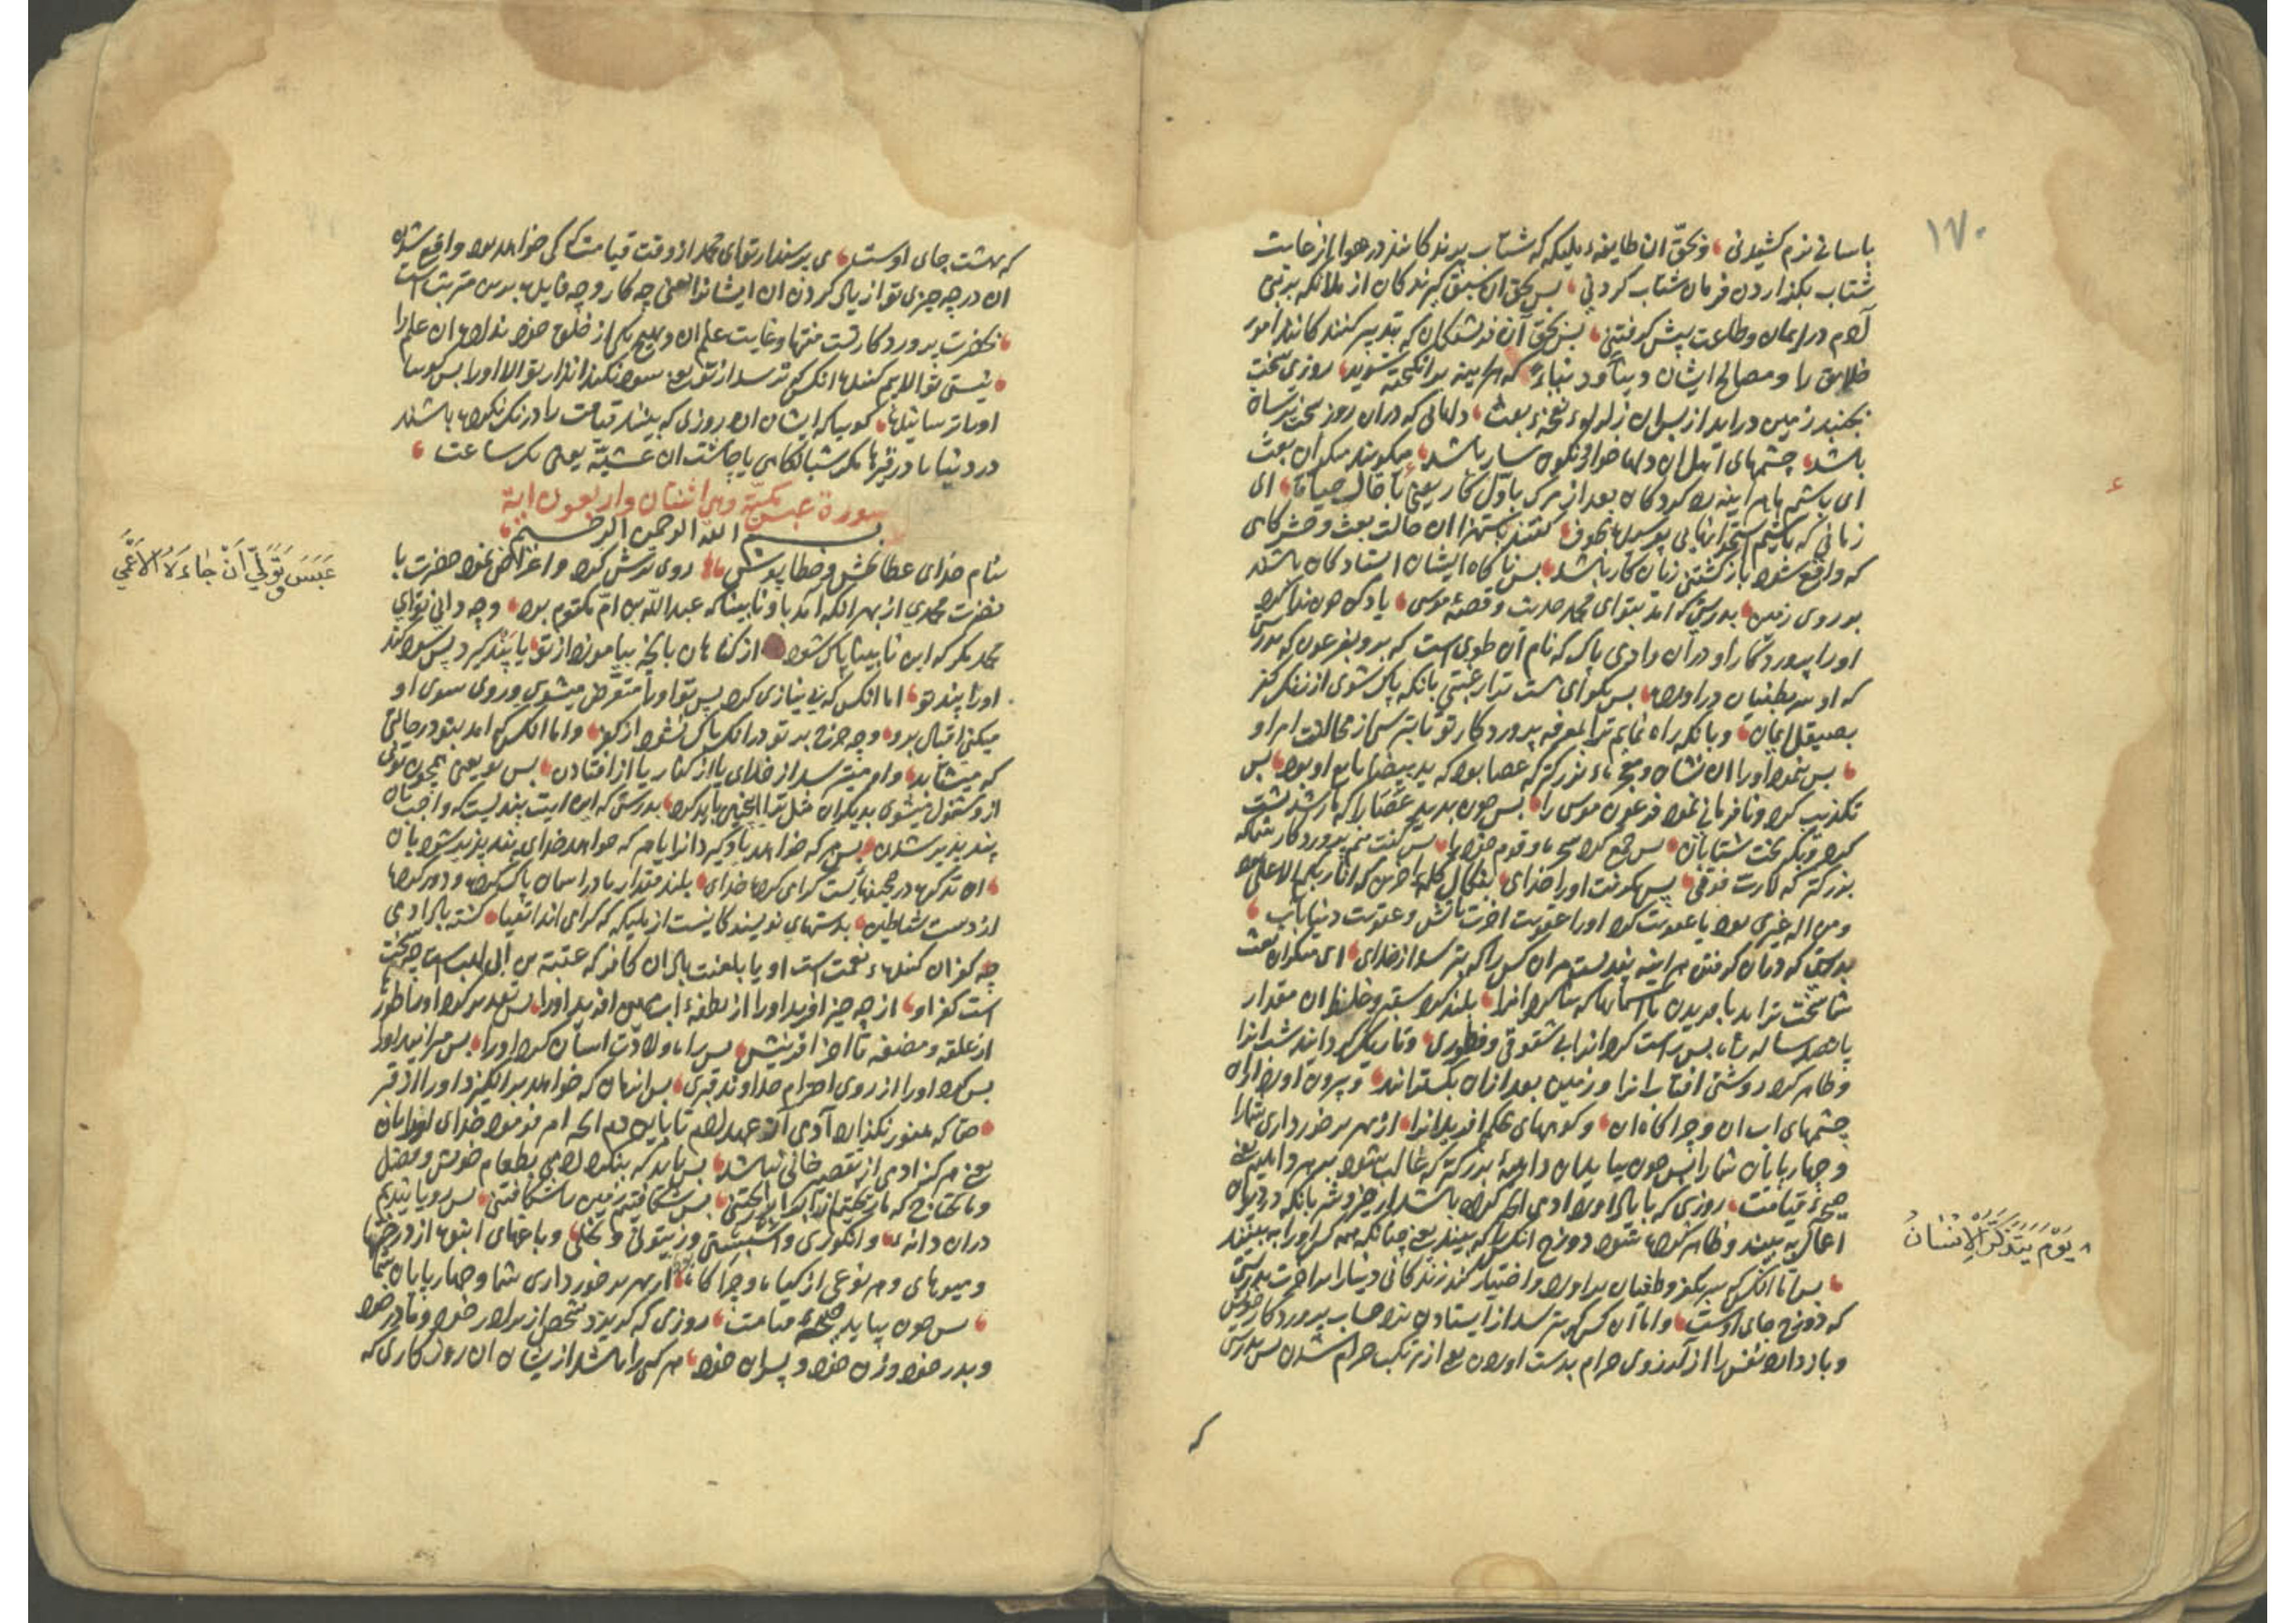 ۱۷۰
باسانی نرم کشیدنی و بحق ان طایفهٔ ملیکه که شتاب پرندکانند در هوا از غایت
شتاب بکذاردن فرمان شتاب کردنی پس بحق ان سبق کیرندکان از ملائکه بر بنی
آدم در ایمان و طاعت پیش کرفتنی پس بحق آن فرشتکان که تدبیر کنندکانند امور
خلایق را و مصالح ایشان که هراینه برانکیخته شوید روزی سخت
بجنبد زمین در اید از پس ان زلزله نفخهٔ بعث دلهائی که دران روز سخت ترسان
باشد چشمهای اهل ان دلها خوار و نکون سار باشد میکویند منکران بعث
ای باشیم ما هراینه رد کردکان بعد از مرک باول کار یعنی باحال حیات ای
زمانی که باشیم استخوانهایی پوسیده کفتند باستهزا ان حالت بعث و حشر کاهی
که واقع شود بازکشتنی زیان کار باشد پس ناکاه ایشان استادکان باشند
بر روی زمین بدرستی که امد بتو ای محمد حدیث و قصهٔ موسی یاد کن چون ندا کرد
اورا پروردکار او دران وادی پاک که نام ان طوی است که برو بفرعون که بدرستی
که او سر بطغیان دراورده پس بکو ای هست ترا رغبتی بانکه پاک شوی از زنک کفر
بصیقل ایمان و بانکه راه نمایم ترا بمعرفه پروردکار تو تا بترسی از مخالفت امر او
پس نمود اورا ان نشان و معجزهٔ بزرکتر که عصا بود که ید بیضا تابع او بود پس
تکذیب کرد و نافرمانی نمود فرعون موسی را پس چون بدید عصا را که اژدها شد پشت
کرد و بکریخت شتابان پس جمع کرد سحره و قوم خود را پس کفت منم پروردکار شما که
بزرکتر که کارت فوقی پس بکرفت اورا خدای بنکال کلمهٔ اخرین که انا ربکم الاعلی
و من اله غیری بود یا عقوبت کرد اورا عقوبت اخرت باتش و عقوبت دنیا باب
بدرستی که دران کرفتن هراینه پندیست مر ان کس را که بترسد از خدای ای منکران بعث
شما سخت تر اید بافریدن یا اسمانها که بنا کرد انرا بلند کرد سقف و غلظ ان مقدار
پانصد ساله راه پس راست کرد انرا بی شقوقی و فطوری و تاریک کردانید شب انرا
و ظاهر کرد روشنی افتاب انرا و زمین بعد ازان بکسترانید و بیرون اورد ازان
چشمهای اب ان و چراکاه ان و کوههای محکم افرید انرا از بهر برخورداری شما را
و چهار پایان شما را پس چون بیاید ان داهیهٔ بزرکتر که غالب شود بر هر داهیه یعنی
صیحهٔ قیامت روزی که با یاد اورد ادمی انچه کرده باشد از خیر و شر بانکه در دیوان
اعمالش به بیند و ظاهر کرده شود دوزخ انکس را که بیند یعنی چنانکه همه کس اورا به بینند
پس اما انکس که سر بکفر و طغیان براورد و اختیار کند زندکانی دنیا را بر اخرت بدرستی
که دوزخ جای اوست و اما ان کس که بترسد از ایستادن نزد حساب پروردکار خویش
و باز دارد نفس را از آرزوی حرام بدست اوردن یعنی از ترکیب حرام شدن پس بدرستی
که
یَوْمَ یَتَذَکَّرُ الْاِنْسَانُ
که بهشت جای اوست می پرسند از تو ای محمد از وقت قیامت که کی خواهد بود واقع شدن
ان در چه چیزی تو از یاد کردن ان ایشانرا یعنی چه کار و چه فایده برین مترتب است
بحضرت پروردکار تست منتها و غایت علم ان و هیچ یکی از خلق خود نداده ان علم را
نیستی تو الا بیم کننده انکس که ترسد از سود نکند انذار تو الا اورا پس کوییا
اورا ترسانیدها کوییا که ایشان ان روزی که بینند قیامت را درنک نکرده باشند
در دنیا یا در قبرها مکر شبانکاهی یا چاشت ان عشیه یعنی یک ساعت
سورة عبس مکیّة وهی اثنتان واربعون ایة
بسم الله الرحمن الرحیم
بنام خدای عطابخش و خطاپوش روی ترش کرد و اعراض نمود حضرت با
نضرت محمدی از بهر انکه امد باو نابینا که عبدالله بن امّ مکتوم بود و چه دانی تو ای
محمد مکر که این نابینا پاک شود از کناهان بانچه بیاموزد از تو یا پند کیرد پس سود کند
اورا پند تو اما انکس که بی نیازی کرد پس تو اورا متعرض میشوی و روی سوی او
میکنی اقبال برو و چه حرج بر تو درانکه پاک نشود از کفر و اما انکس که امد بتو در حالتی
که میشتابد و او میترسد از خدای یا از کفار یا از افتادن پس تو یعنی همچون توئی
ازو مشغول میشوی بدیکران مثل ترا اینچنین نباید کرد بدرستی که این ایت پندیست که واجبست ان
پند پذیر شدن پس هر که خواهد یاد کیرد انرا یا هر که خواهد خدای پند پذیر شود بان
ان تذکره در صحیفهاییست کرامی کرده خدای بلند مقدار یا در اسمان پاک کرده و دور کرده
از دست شیاطین بدستهای نویسندکانیست از ملیکه که کرامی اند اتقیا کشته باد ادمی
چه کفران کننده نعمت است او یا بلعنت باد ان کافر که عتبه بن ابی لهب است چه سخت
است کفر او از چه چیز افرید اورا از نطفهٔ اب مهین افرید اورا پس تقدیر کرد اورا طورها
از علقه و مضغه تا اخر افرینش پس راه ولادت اسان کرد اورا پس میرانید اورا
پس کرد اورا از روی احترام خداوند قبری پس انزمان که خواهد برانکیزد اورا از قبر
حقا که هنوز نکذارد آدمی از عهد آدم تا باین دم انچه امر فرمود خدای اورا بان
یعنی هرکز ادمی از تقصیر خالی نباشد پس باید که بنکرد ادمی بطعام خویش و فضل
و ما یحتاج که ما ریختیم از ابر اب را ریختنی پس شکافتیم زمین را شکافتنی پس رویانیدیم
دران دانه و انکوری و اسپستی و زیتونی و نخلی و باغهای انبوه از درختها
و میوهای و هر نوعی از کیاه و چراکاه از بهر برخورداری شما و چهار پایان شما
پس چون بیاید صیحهٔ قیامت روزی که کریزد شخص از برادر خود و مادر خود
و پدر خود و زن خود و پسران خود هر کسی را باشد از ایشان ان روز کاری که
عَبَسَ وَتَوَلّٰی اَنْ جَاءَهُ الْاَعْمٰی